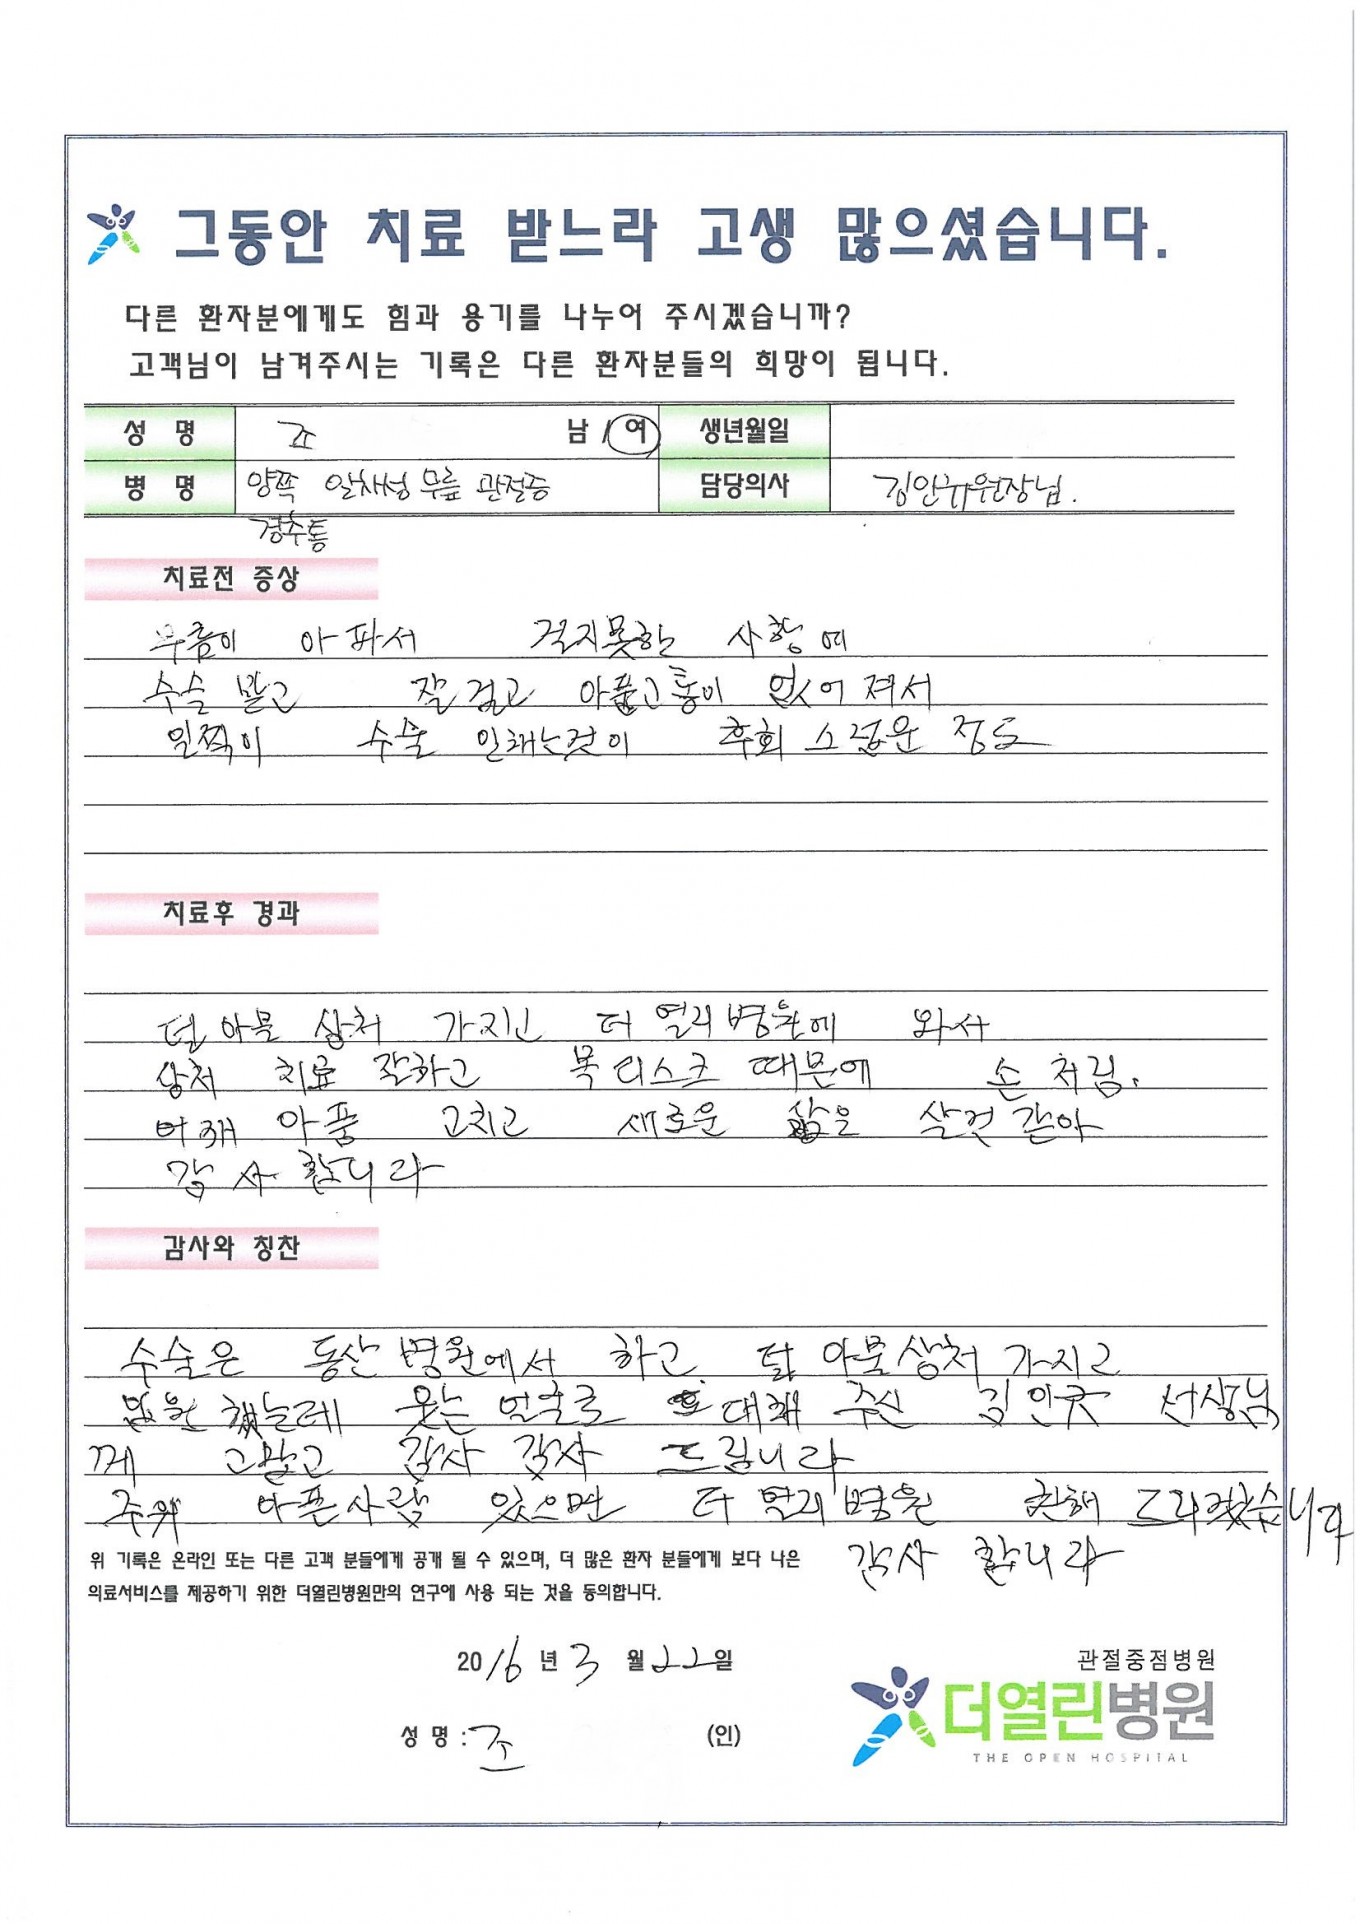 그동안 치료 받느라 고생 많으셨습니다.
다른 환자분에게도 힘과 용기를 나누어 주시겠습니까?
고객님이 남겨주시는 기록은 다른 환자분들의 희망이 됩니다.
성 명 조 남 / 여 생년월일
병 명 양쪽 일차성 무릎 관절증 담당의사 김안규원장님.
경추통
치료전 증상
무릎이 아파서 걷지못한 사항에
수술 받고 잘 걷고 아픔고통이 없어 져서
일찍이 수술 안해는것이 후회 스러운 정도
치료후 경과
덜 아문 상처 가지고 더 열리병원에 와서
상처 치료 잘하고 목 디스크 때문에 손 처림.
어깨 아픔 고치고 새로운 삶은 살것 같아
감사 합니다
감사와 칭찬
수술은 동산 병원에서 하고 덜 아문상처 가지고
입원 했는데 웃는 얼굴로 대해 주신 김안규 선생님
께 고맙고 감사 감사 드립니다
주위 아픈사람 있으면 더 열리병원 친해 드리겠습니다
감사 합니다
위 기록은 온라인 또는 다른 고객 분들에게 공개 될 수 있으며, 더 많은 환자 분들에게 보다 나은
의료서비스를 제공하기 위한 더열린병원만의 연구에 사용 되는 것을 동의합니다.
2016년 3월 22일
성 명 : 조 (인)
관절중점병원
더열린병원
THE OPEN HOSPITAL